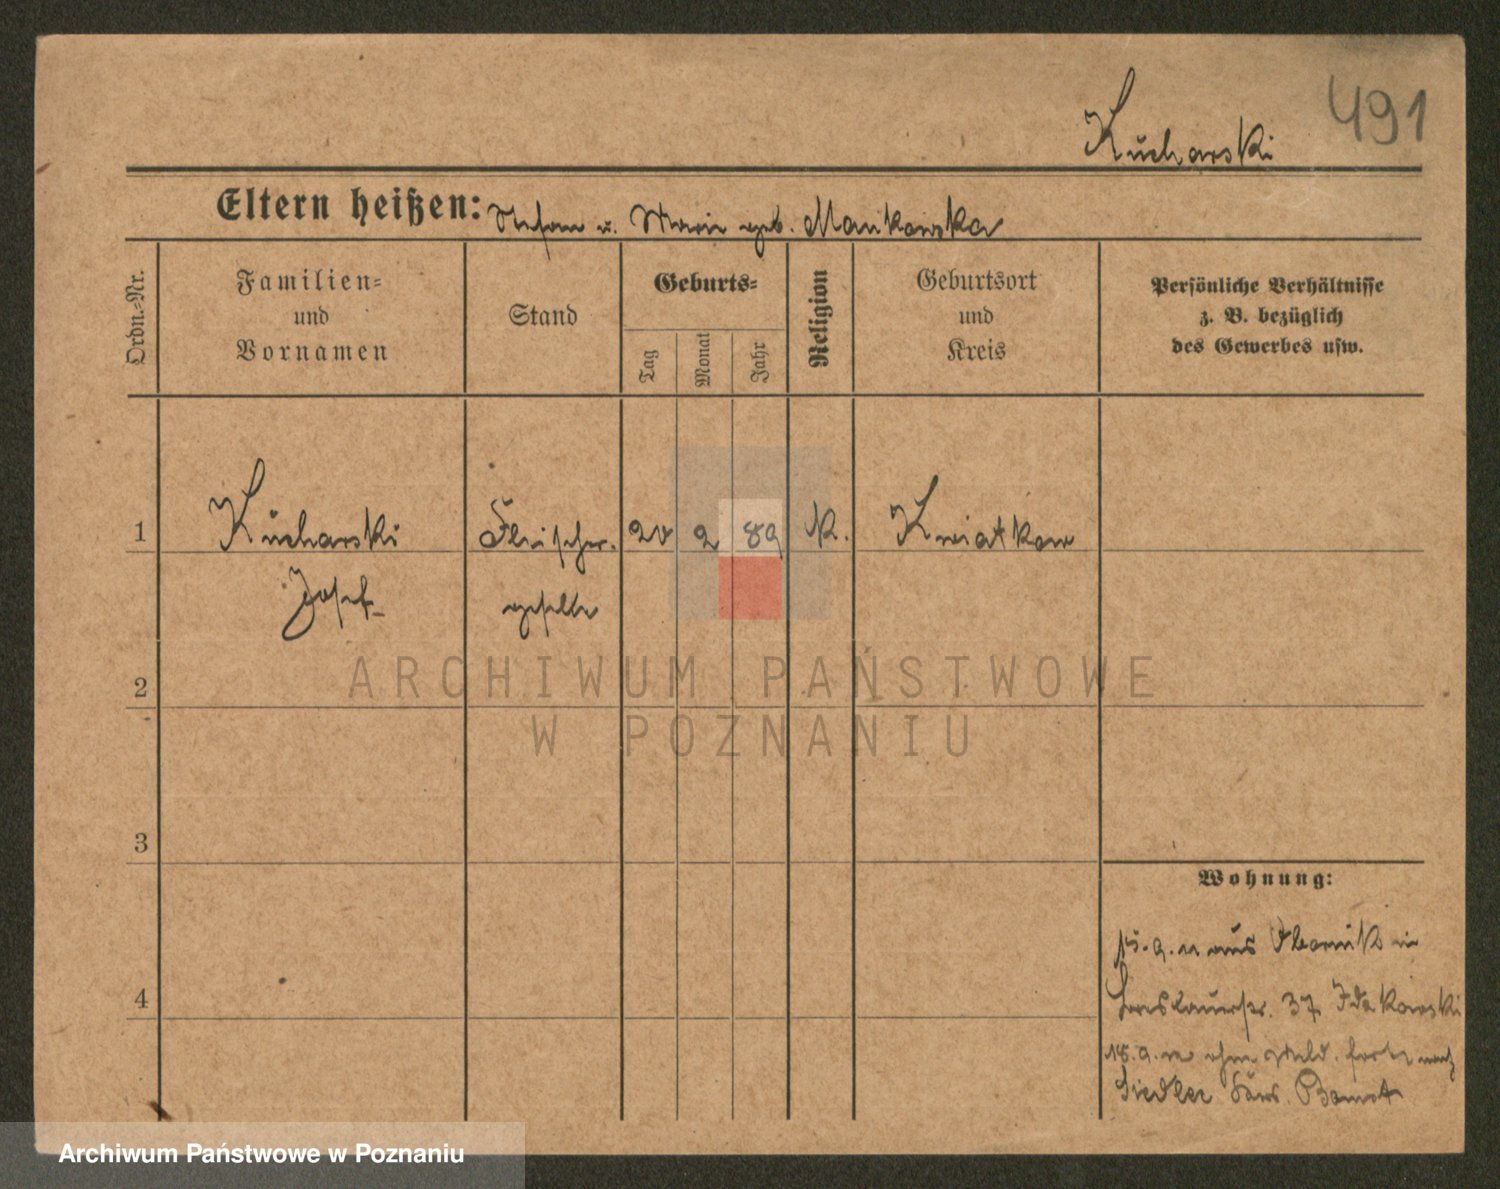 491
Kucharski
Eltern heißen: Stefan u. Marie geb. Mankowska
Ordn.-Nr.
Familien-
und
Vornamen
Stand
Geburts-
Tag
Monat
Jahr
Religion
Geburtsort
und
Kreis
Persönliche Verhältnisse
z. B. bezüglich
des Gewerbes usw.
1
Kucharski
Josef
Fleischer-
geselle
20 2 89
K.
Kwiatkow
2
3
4
Wohnung:
aus in
37
ohne Meld. fort nach
Siedler
ARCHIWUM PAŃSTWOWE
W POZNANIU
Archiwum Państwowe w Poznaniu